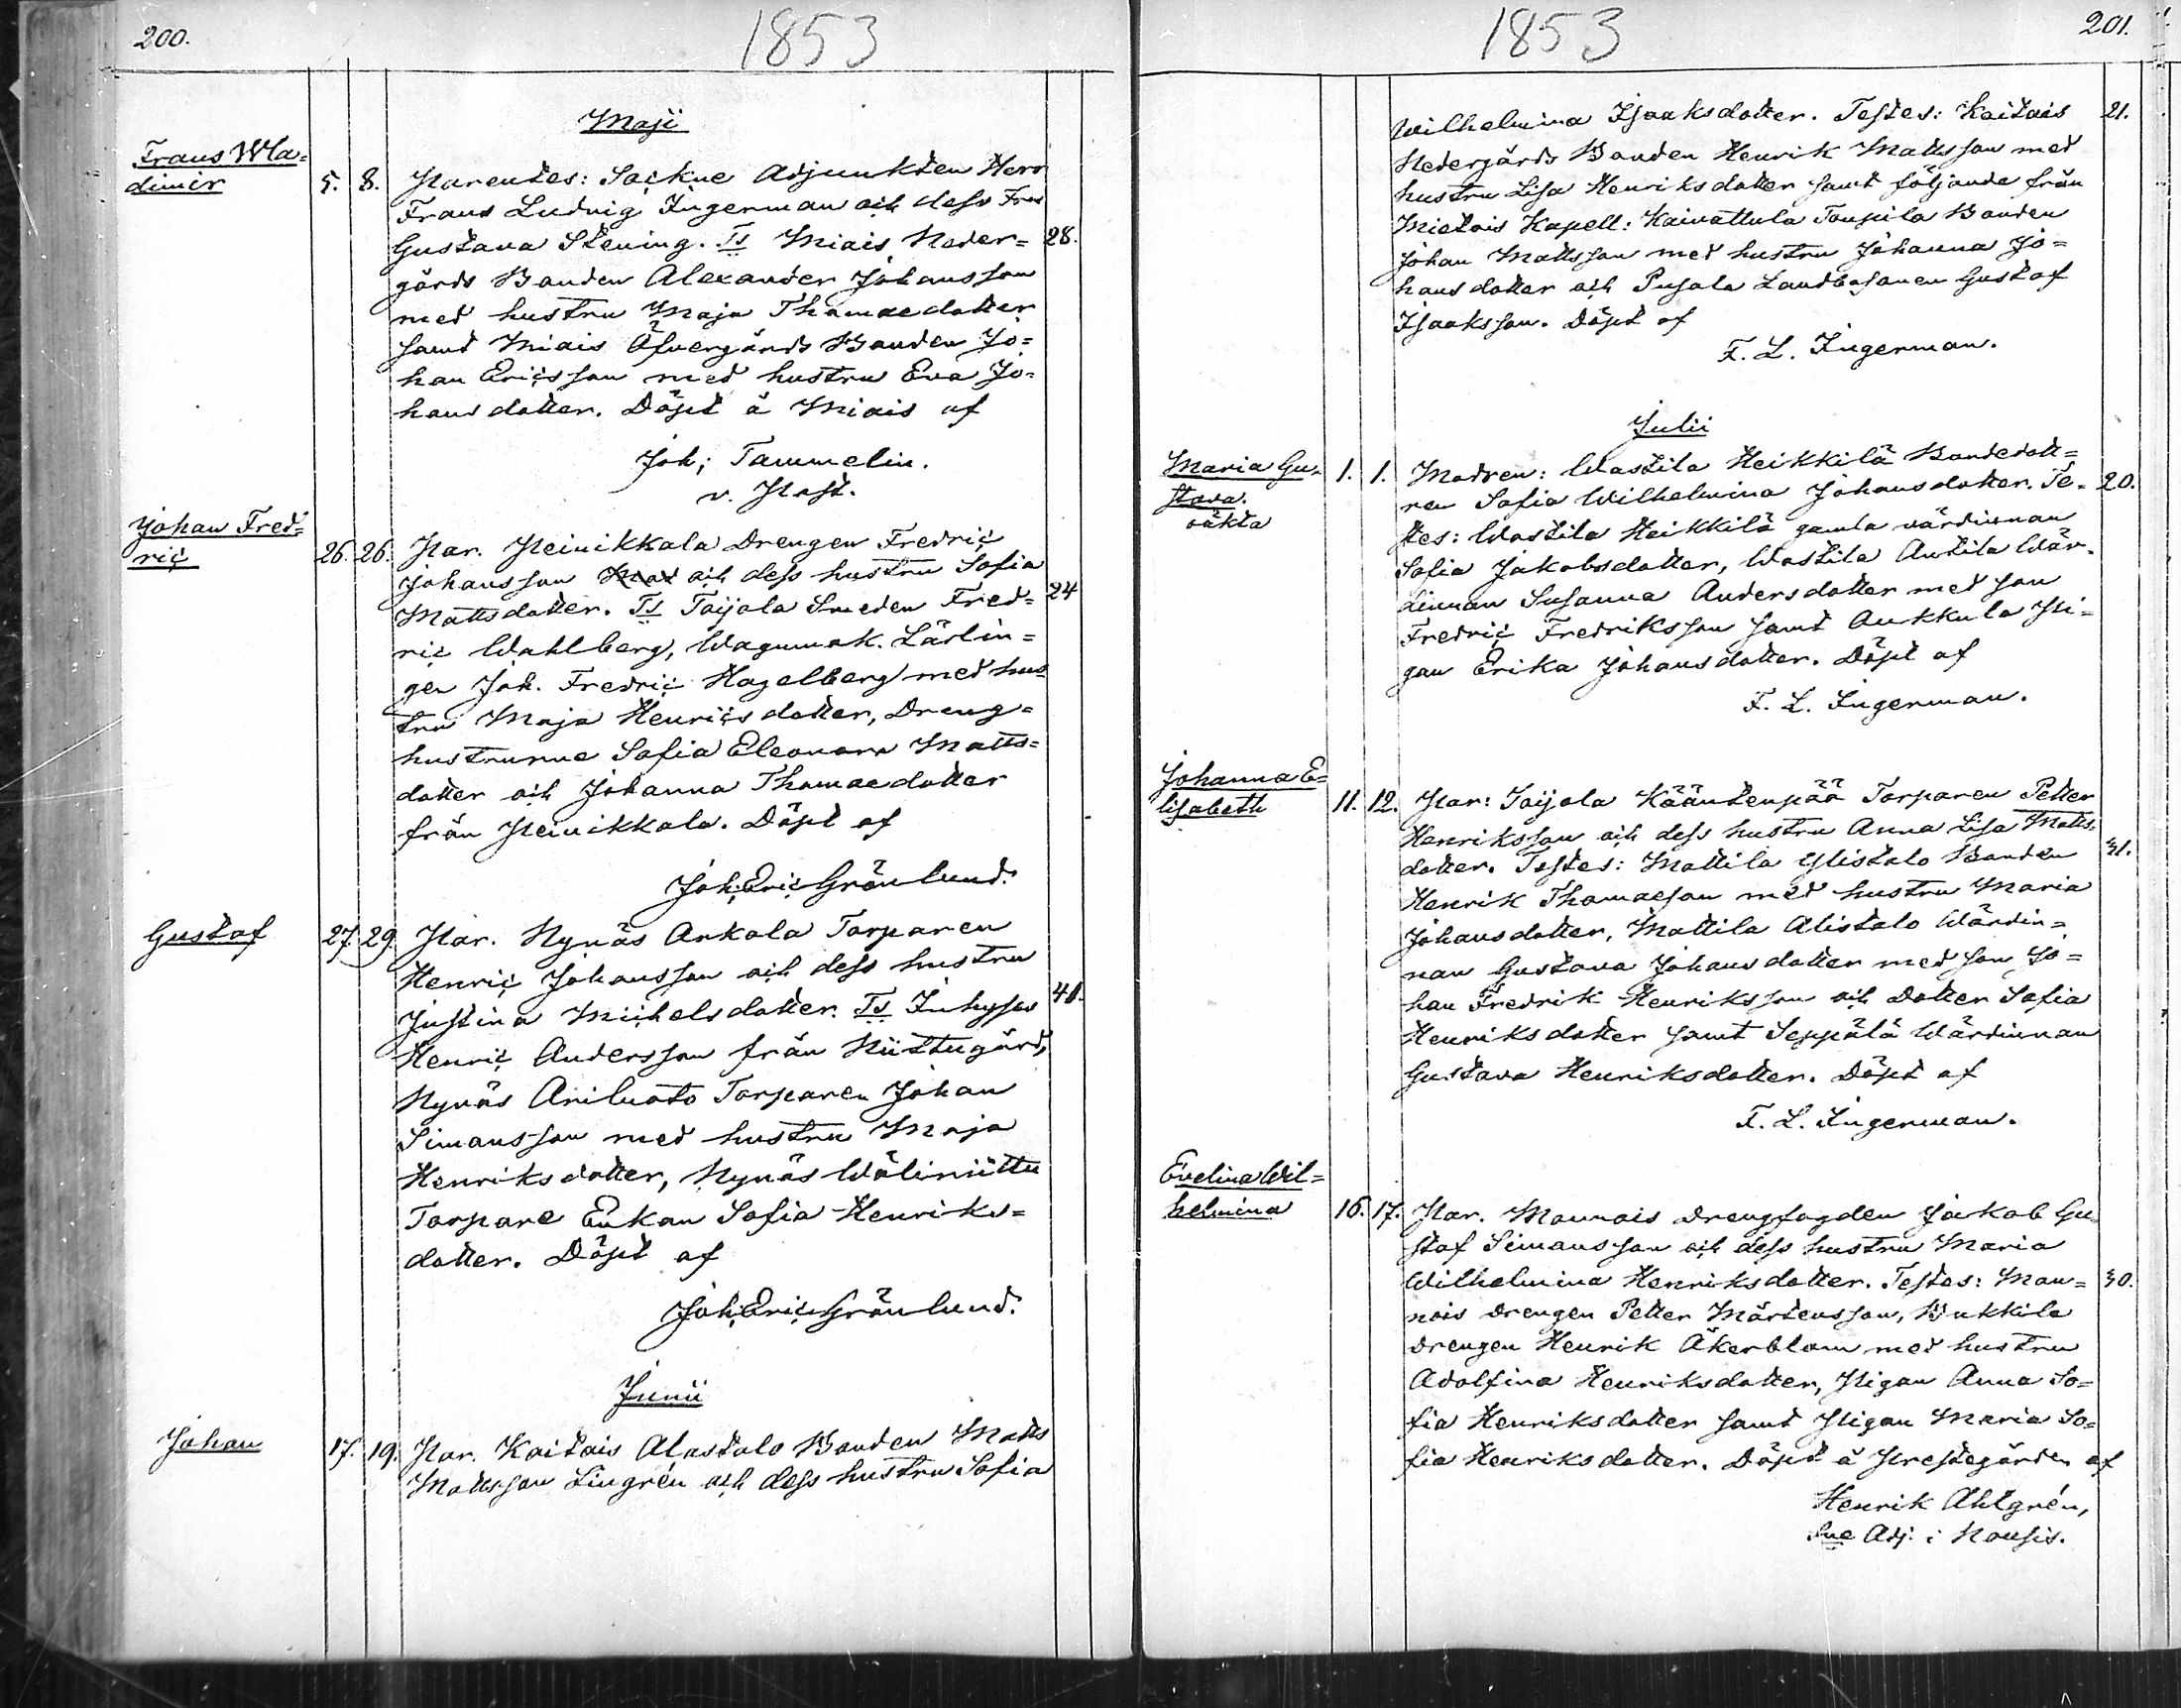 200.
1853
Maji
Frans Wla=
dimir
5. 8. Parentes: Sockne Adjunkten Herr
Frans Ludvig Ingerman och dess Fru
Gustava Stening. Ts Miais Neder= 28.
gårds Bonden Alexander Johansson
med hustru Maja Thomaedotter
samt Miais Öfvergårds Bonden Jo=
han Ericsson med hustru Eva Jo=
hansdotter. Döpt å Miais af
Joh; Tammelin.
v. Past.
Johan Fred=
ric
26. 26. Par. Peinikkala Drengen Fredric
Johansson och dess hustru Sofia
Mattsdotter. Ts Toijola Smeden Fred= 24
ric Wahlberg, Wagnmak. Lärlin=
gen Joh. Fredric Hagelberg med hus
tru Maja Henricsdotter, Dreng=
hustrurne Sofia Eleonora Matts=
dotter och Johanna Thomaedotter
från Peinikkala. Döpt af
Joh; Eric Grönlund.
Gustaf
27. 29. Par. Nynäs Arkala Torparen
Henric Johansson och dess hustru
Justina Michelsdotter. Ts Inhyses 41.
Henric Andersson från Niittugård,
Nynäs Ariluoto Torparen Johan
Simonsson med hustru Maja
Henriksdotter, Nynäs Wäliniittu
Torpare Enkan Sofia Henriks=
dotter. Döpt af
Joh; Eric Grönlund.
Junii
Johan
17. 19. Par. Kaitais Alastalo Bonden Matts
Mattsson Lingrén och dess hustru Sofia
1853
201.
Wilhelmina Isaaksdotter. Testes: Kaitais 21.
Nedergårds Bonden Henrik Mattsson med
hustru Lisa Henriksdotter samt följande från
Mietois Kapell: Kaivattula Toupila Bonden
Johan Mattsson med hustru Johanna Jo=
hansdotter och Pusala Landbosonen Gustaf
Isaaksson. Döpt af
F. L. Ingerman.
Julii
Maria Gu=
stava.
oäkta
1. 1. Modren: Wastila Heikkilä Bondedott=
ren Sofia Wilhelmina Johansdotter. Te= 20.
stes: Wastila Heikkilä gamla värdinnan
Sofia Jakobsdotter, Wastila Antila Wär=
dinnan Susanna Andersdotter med son
Fredric Fredriksson samt Aukkula Pi=
gan Erika Johansdotter. Döpt af
F. L. Ingerman.
Johanna E=
lisabeth
11. 12. Par: Toijola Kääntenpää Torparen Petter
Henriksson och dess hustru Anna Lisa Matts=
dotter. Testes: Mattila Ylistalo Bonden 41.
Henrik Thomaeson med hustru Maria
Johansdotter, Mattila Alistalo Wärdin=
nan Gustava Johansdotter med son Jo=
han Fredrik Henriksson och Dotter Sofia
Henriksdotter samt Seppälä Wärdinnan
Gustava Henriksdotter. Döpt af
F. L. Ingerman.
Evelina Wil=
helmina
16. 17. Par. Mounois Drengfogden Jakob Gu=
staf Simonsson och dess hustru Maria
Wilhelmina Henriksdotter. Testes: Mou= 30.
nois Drengen Petter Mårtensson, Bukkila
Drengen Henrik Åkerblom med hustru
Adolfina Henriksdotter, Pigan Anna So=
fia Henriksdotter samt Pigan Maria So=
fia Henriksdotter. Döpt å Prestegården af
Henrik Ahlgrén,
Sne Adj. i Nousis.